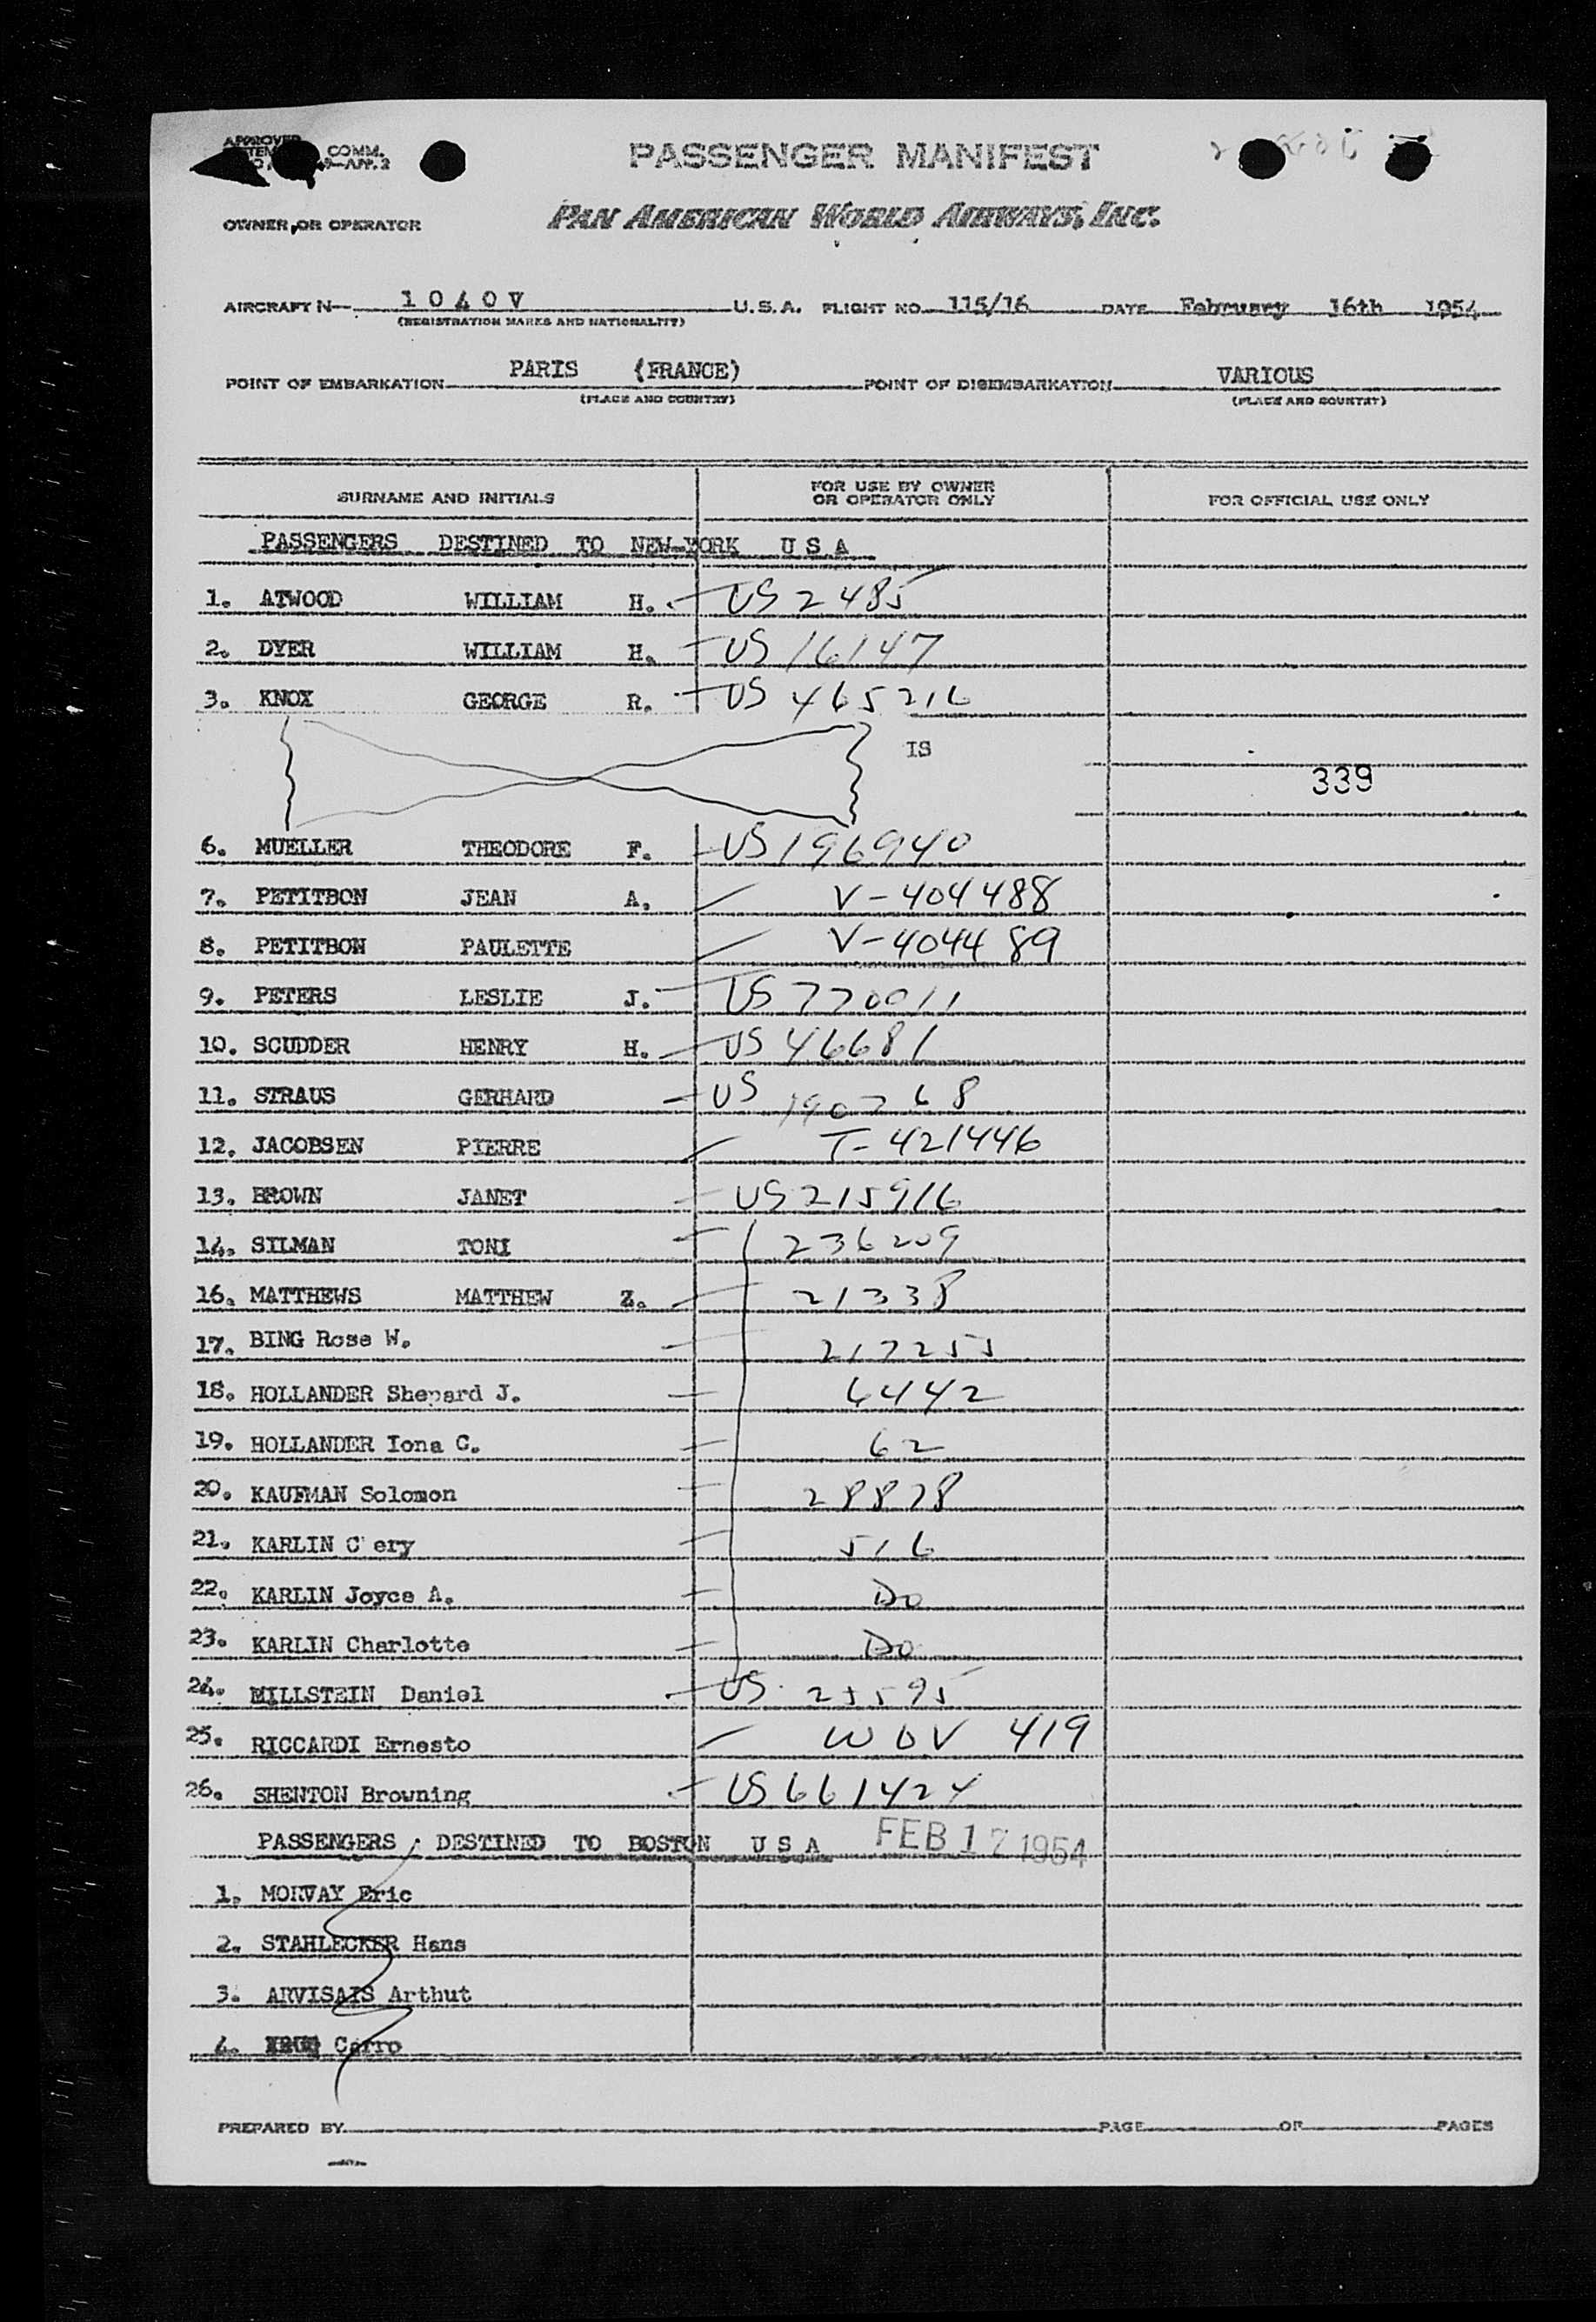 APPROVED COMM.
APP. 2
PASSENGER MANIFEST
OWNER OR OPERATOR PAN AMERICAN WORLD AIRWAYS, INC.
AIRCRAFT N— 1040V U.S.A. FLIGHT NO. 115/16 DATE February 16th 1954
(REGISTRATION MARKS AND NATIONALITY)
POINT OF EMBARKATION PARIS (FRANCE) POINT OF DISEMBARKATION VARIOUS
(PLACE AND COUNTRY) (PLACE AND COUNTRY)
SURNAME AND INITIALS FOR USE BY OWNER OR OPERATOR ONLY FOR OFFICIAL USE ONLY
PASSENGERS DESTINED TO NEW-YORK U S A
1. ATWOOD WILLIAM H. US 2485
2. DYER WILLIAM H. US 16147
3. KNOX GEORGE R. US 465216
IS
339
6. MUELLER THEODORE F. US 196940
7. PETITBON JEAN A. V-404488
8. PETITBON PAULETTE V-404489
9. PETERS LESLIE J. US 770011
10. SCUDDER HENRY H. US 46681
11. STRAUS GERHARD US 190768
12. JACOBSEN PIERRE T-421446
13. BROWN JANET US 215916
14. SILMAN TONI 236209
16. MATTHEWS MATTHEW Z. 21338
17. BING Rose W. 217255
18. HOLLANDER Shepard J. 6442
19. HOLLANDER Iona C. 62
20. KAUFMAN Solomon 28878
21. KARLIN C'ery 516
22. KARLIN Joyce A. Do
23. KARLIN Charlotte Do
24. MILLSTEIN Daniel US 25595
25. RICCARDI Ernesto WDV 419
26. SHENTON Browning US 661424
PASSENGERS DESTINED TO BOSTON U S A FEB 17 1954
1. MORVAY Eric
2. STAHLECKER Hans
3. ARVISAIS Arthut
4. Carro
PREPARED BY PAGE OF PAGES